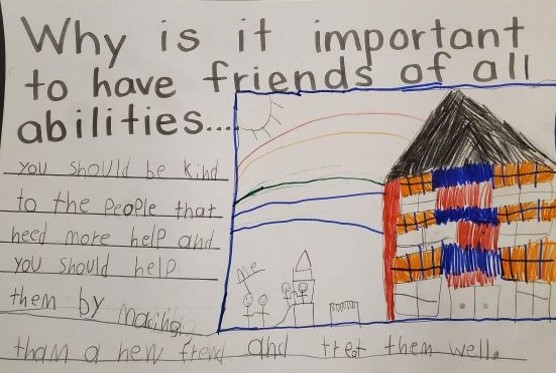 Why is it important
to have friends of all
abilities...
you should be kind
to the people that
need more help and
you should help
them by making
tham a new frend and treat them well.
Me